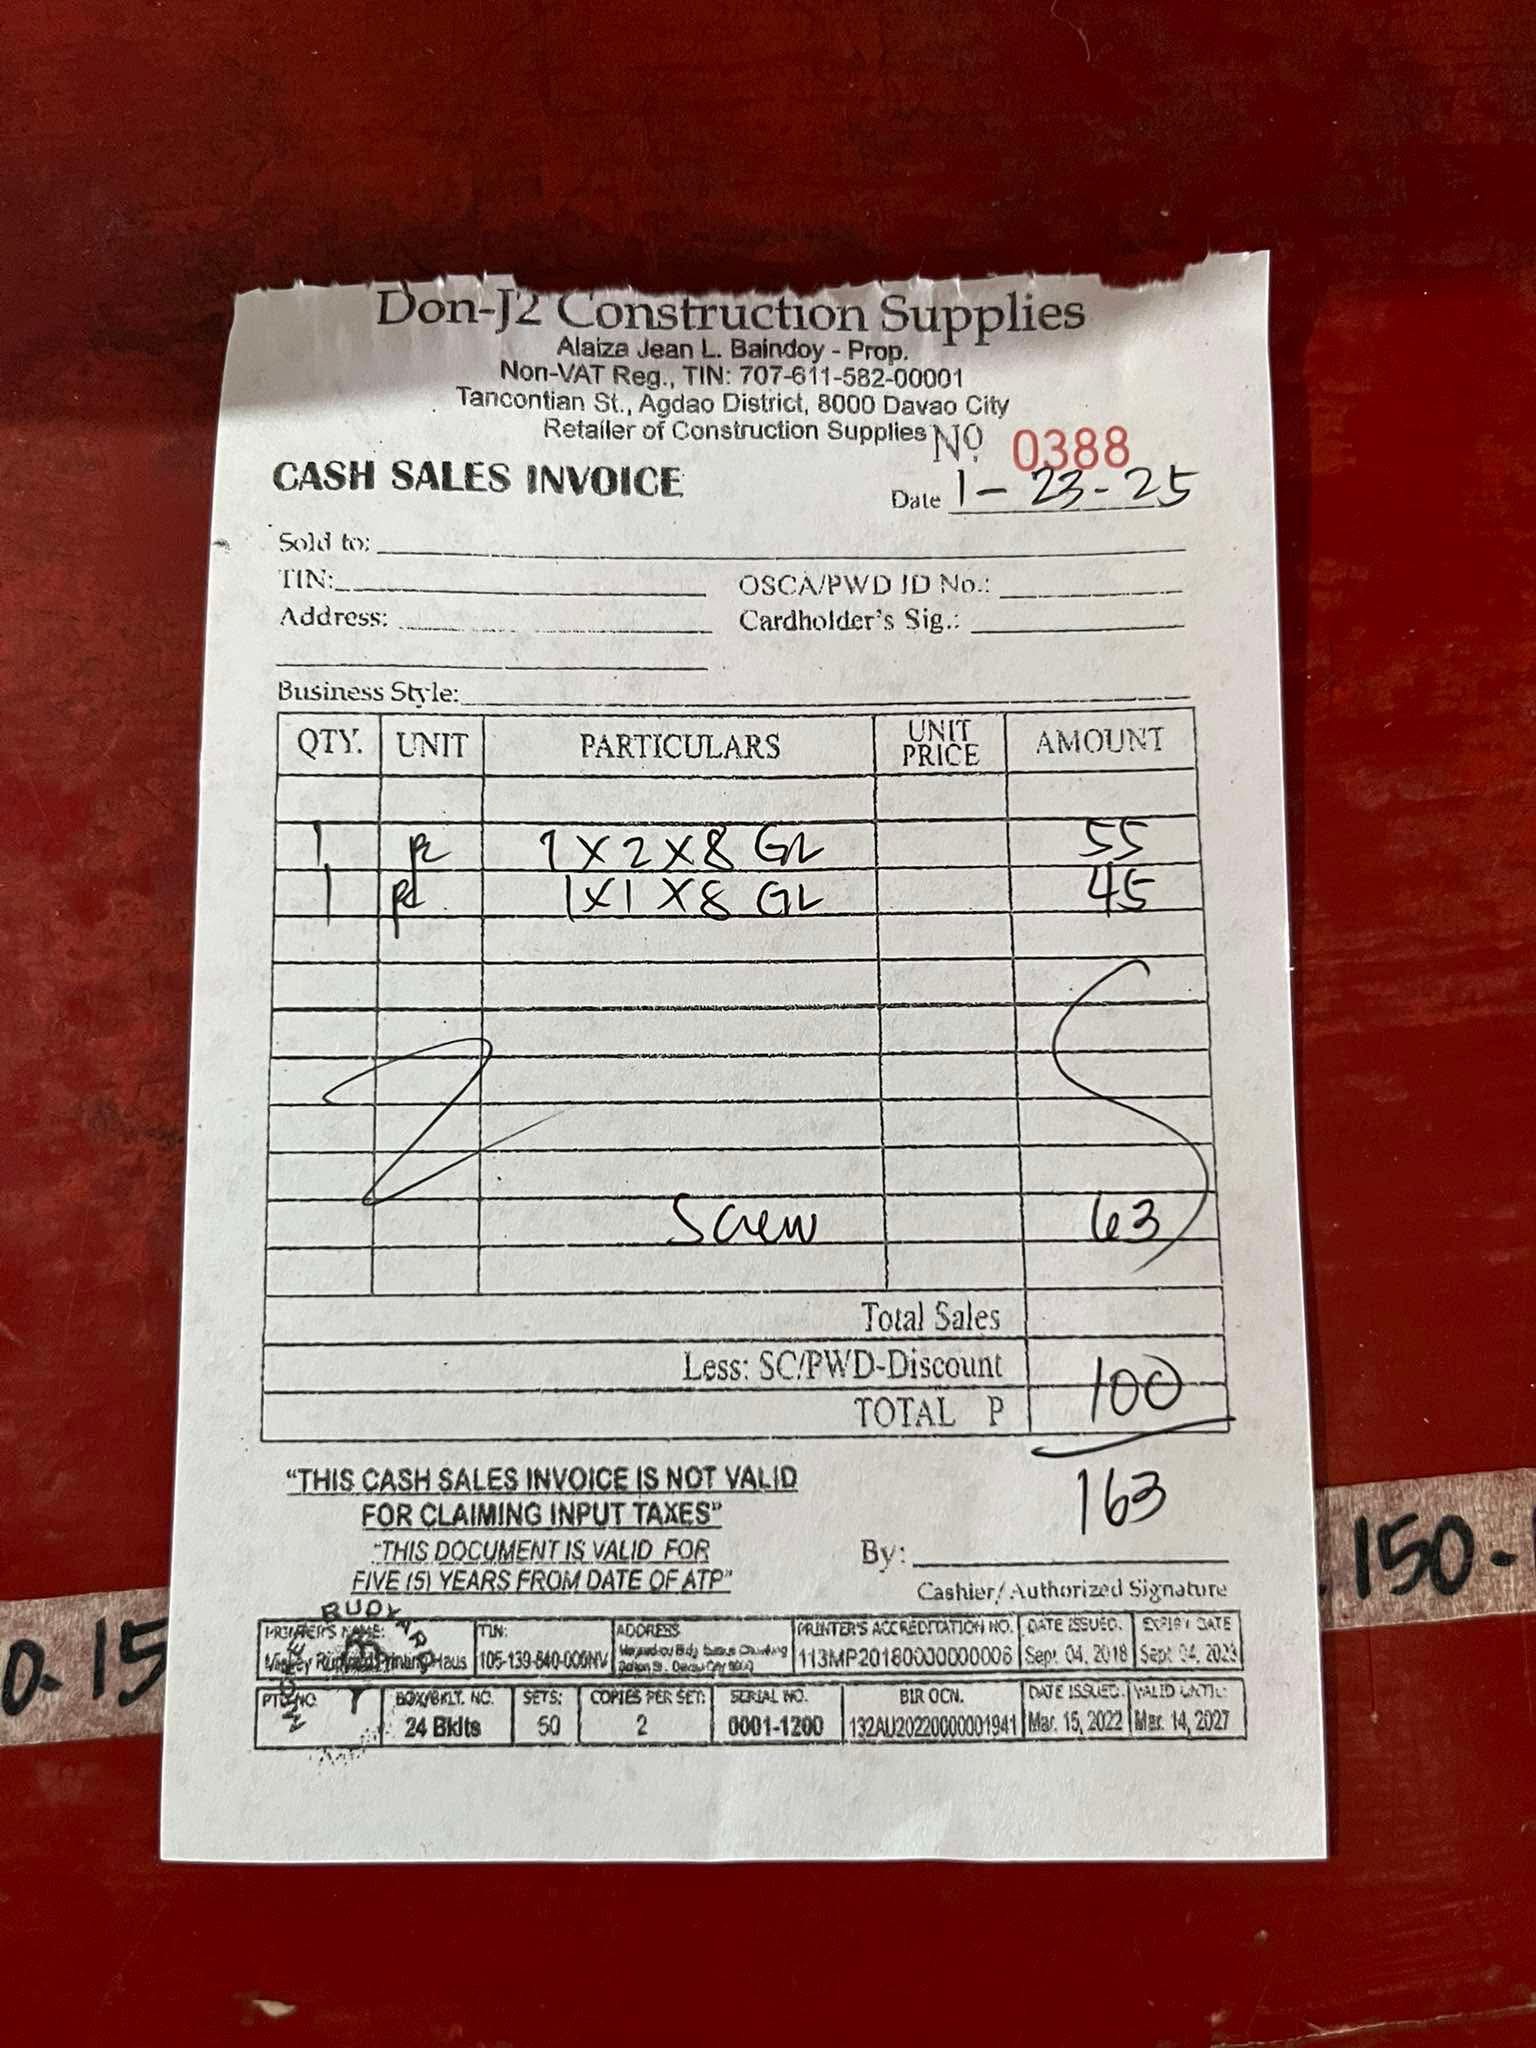 Don-J2 Construction Supplies
Alaiza Jean L. Baindoy - Prop.
Non-VAT Reg., TIN: 707-611-582-00001
Tancontian St., Agdao District, 8000 Davao City
Retailer of Construction Supplies
No. 0388
CASH SALES INVOICE
Date 1-23-25
Sold to:
TIN: OSCA/PWD ID No.:
Address: Cardholder's Sig.:
Business Style:
QTY. UNIT PARTICULARS UNIT PRICE AMOUNT
1 pc 1x2x8 GL 55
1 pc 1x1x8 GL 45
Screw 63
Total Sales
Less: SC/PWD-Discount
100
TOTAL P
163
"THIS CASH SALES INVOICE IS NOT VALID
FOR CLAIMING INPUT TAXES"
"THIS DOCUMENT IS VALID FOR
FIVE (5) YEARS FROM DATE OF ATP"
By:
Cashier/Authorized Signature
PRINTER'S NAME: TIN: ADDRESS PRINTER'S ACCREDITATION NO. DATE ISSUED. EXPIRY DATE
Printing Haus 105-139-840-000NV 113MP20180000000006 Sept. 04, 2018 Sept. 04, 2023
NO. BOX/BKLT. NO. SETS: COPIES PER SET: SERIAL NO. BIR OCN. DATE ISSUED: VALID UNTIL:
24 Bklts 50 2 0001-1200 132AU20220000001941 Mar. 15, 2022 Mar. 14, 2027
0.15
.150-